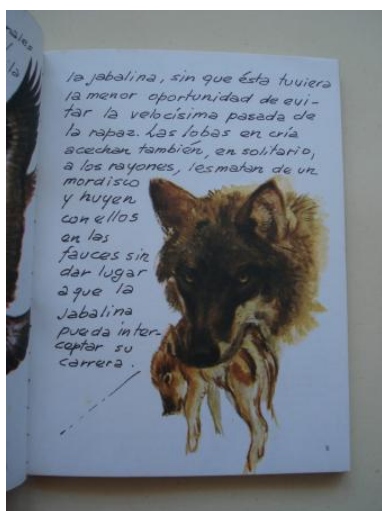 la jabalina, sin que ésta tuviera
la menor oportunidad de evi-
tar la velocísima pasada de
la rapaz. Las lobas en cría
acechan también, en solitario,
a los rayones, les matan de un
mordisco
y huyen
con ellos
en las
fauces sin
dar lugar
a que la
jabalina
pueda inter-
ceptar su
carrera.